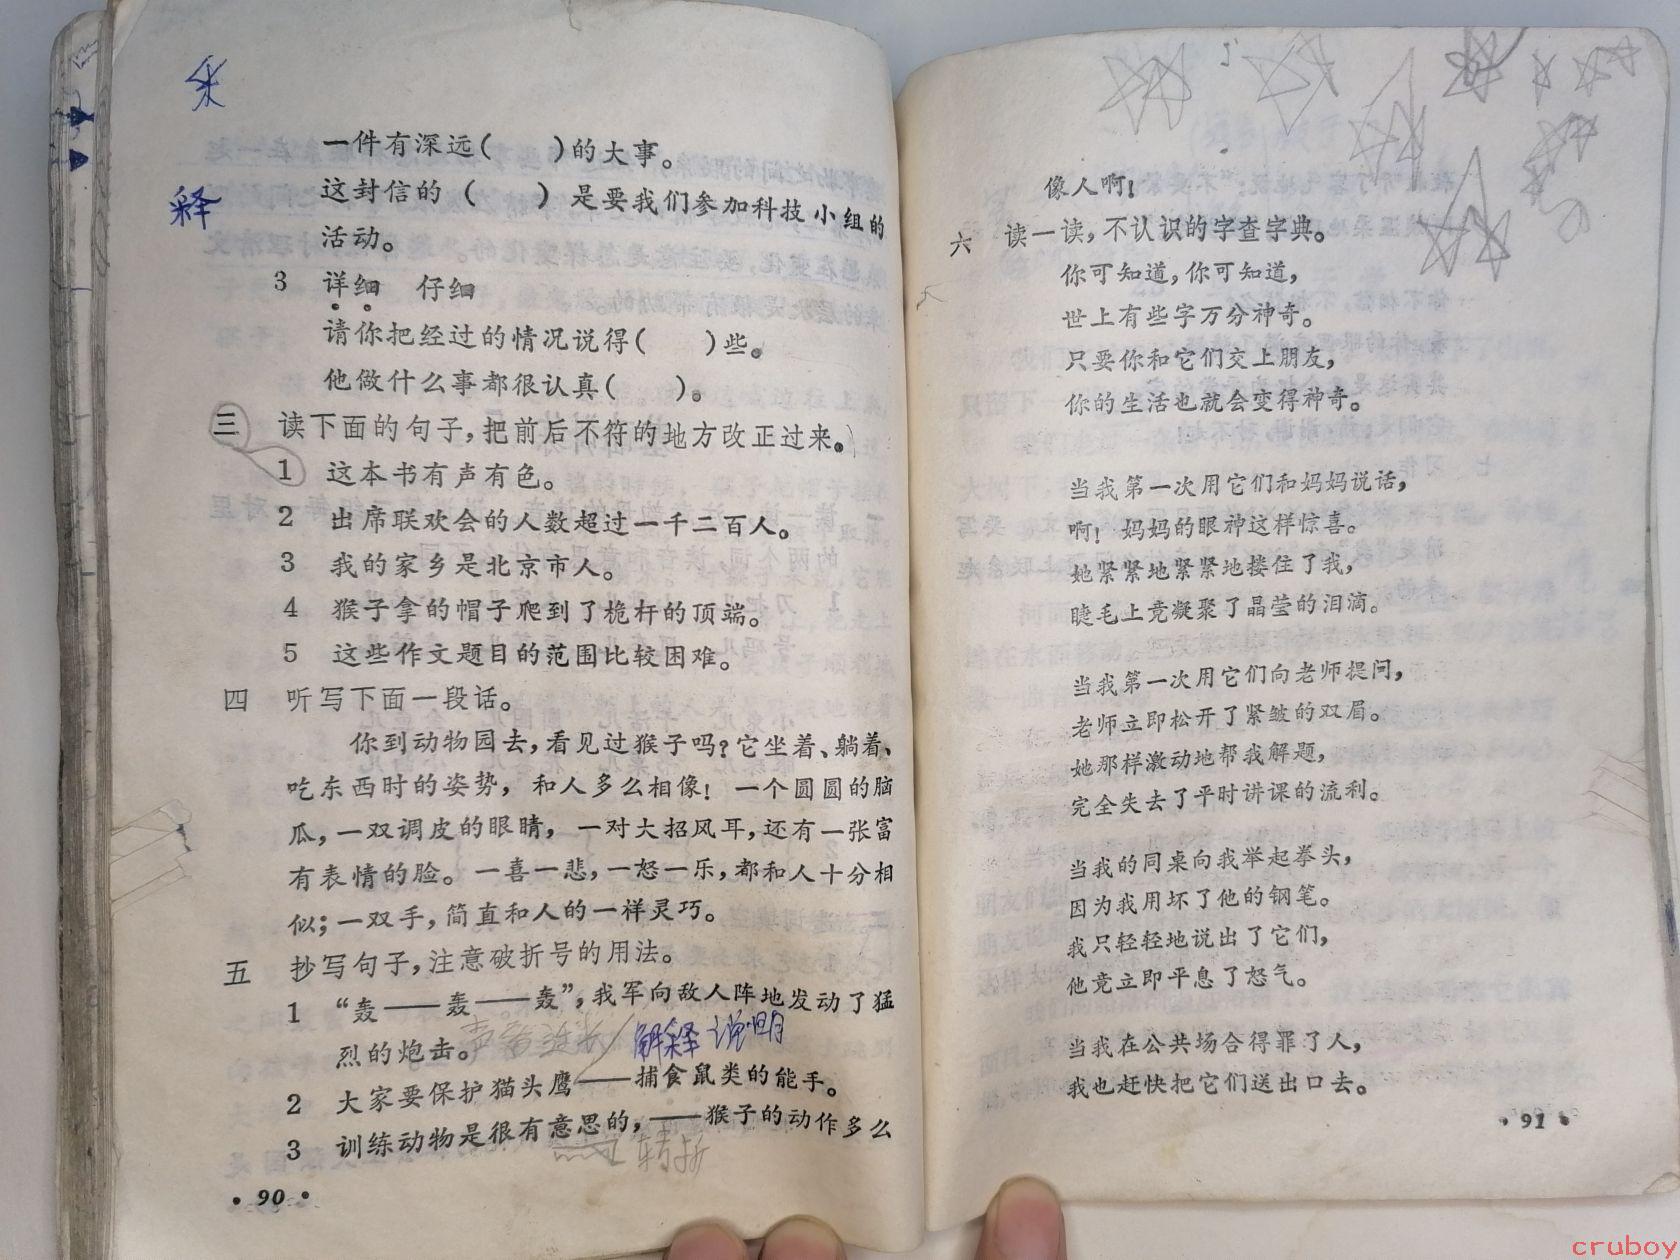 采
释
一件有深远(　　)的大事。
这封信的(　　)是要我们参加科技小组的
活动。
3 详细　仔细
请你把经过的情况说得(　　)些。
他做什么事都很认真(　　)。
三 读下面的句子,把前后不符的地方改正过来。
1 这本书有声有色。
2 出席联欢会的人数超过一千二百人。
3 我的家乡是北京市人。
4 猴子拿的帽子爬到了桅杆的顶端。
5 这些作文题目的范围比较困难。
四 听写下面一段话。
你到动物园去,看见过猴子吗?它坐着、躺着、
吃东西时的姿势,和人多么相像!一个圆圆的脑
瓜,一双调皮的眼睛,一对大招风耳,还有一张富
有表情的脸。一喜一悲,一怒一乐,都和人十分相
似;一双手,简直和人的一样灵巧。
五 抄写句子,注意破折号的用法。
1 “轰——轰——轰”,我军向敌人阵地发动了猛
烈的炮击。
解释说明
2 大家要保护猫头鹰——捕食鼠类的能手。
3 训练动物是很有意思的,——猴子的动作多么
转折
·90·
像人啊!
六 读一读,不认识的字查字典。
你可知道,你可知道,
世上有些字万分神奇。
只要你和它们交上朋友,
你的生活也就会变得神奇。
当我第一次用它们和妈妈说话,
啊!妈妈的眼神这样惊喜。
她紧紧地紧紧地搂住了我,
睫毛上竞凝聚了晶莹的泪滴。
当我第一次用它们向老师提问,
老师立即松开了紧皱的双眉。
她那样激动地帮我解题,
完全失去了平时讲课的流利。
当我的同桌向我举起拳头,
因为我用坏了他的钢笔。
我只轻轻地说出了它们,
他竟立即平息了怒气。
当我在公共场合得罪了人,
我也赶快把它们送出口去。
·91·
cruboy